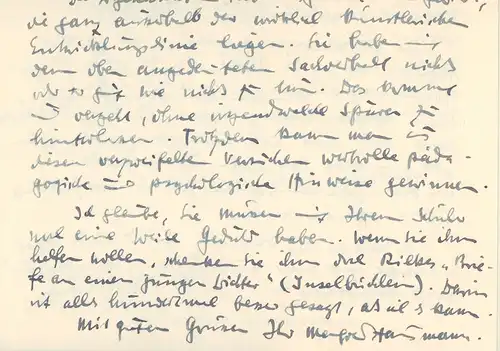 die ganz ausserhalb der wirklich künstlerischen
Entwicklungslinie liegen. Sie haben mit
dem oben angedeuteten Sachverhalt nichts
oder so gut wie nichts zu tun. Das kommt
und vergeht, ohne irgendwelche Spuren zu
hinterlassen. Trotzdem kann man aus
diesen verzweifelten Versuchen wertvolle päda-
gogische und psychologische Hinweise gewinnen.
Ich glaube, Sie müssen mit Ihrem Schüler
noch eine Weile Geduld haben. Wenn Sie ihm
helfen wollen, schenken Sie ihm doch Rilkes „Brie-
fe an einen jungen Dichter“ (Inselbüchlein). Darin
ist alles hundertmal besser gesagt, als ich es kann.
Mit guten Grüssen Ihr Manfred Hausmann.